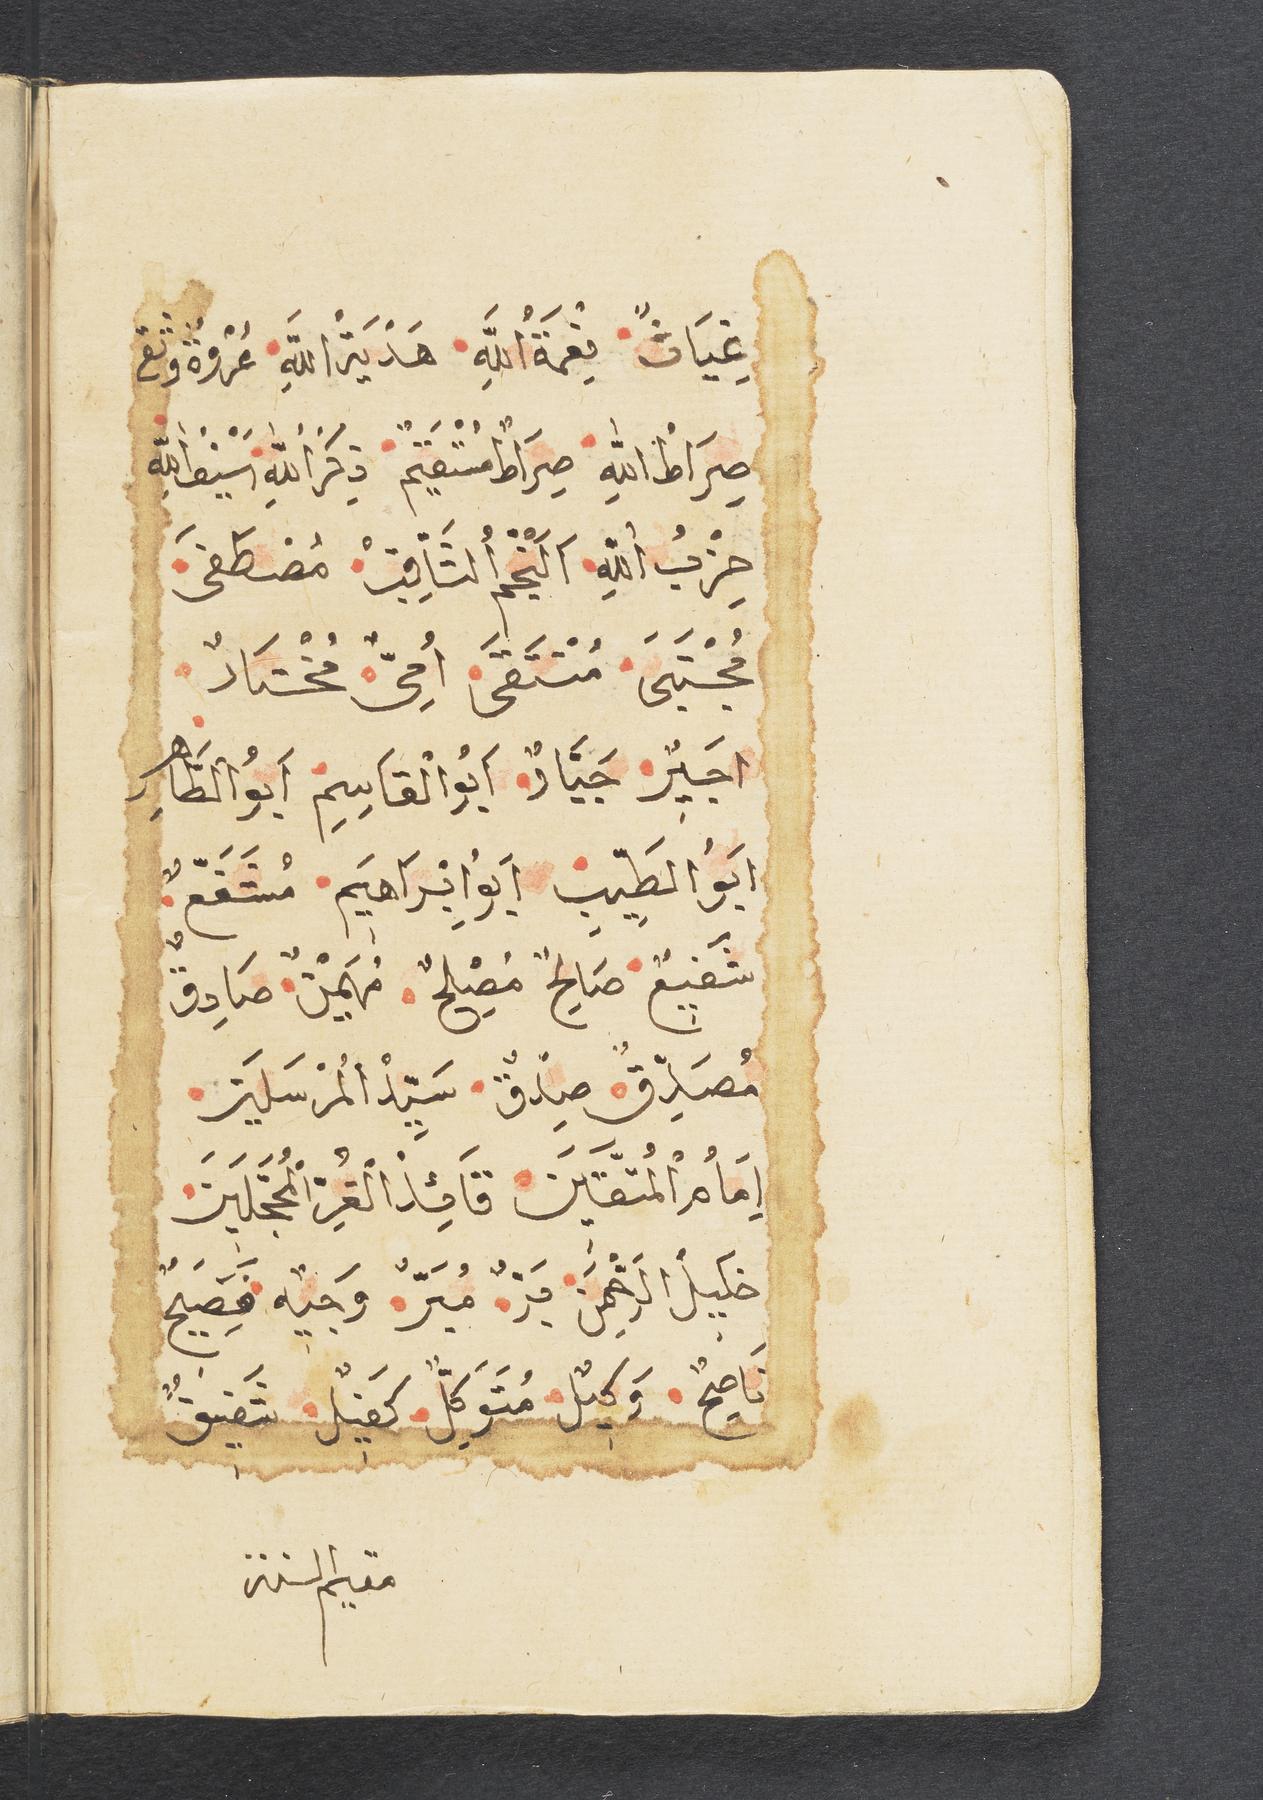 غِيَاثٌ نِعْمَةُ اللَّهِ هَدْيَةُ اللَّهِ عُرْوَةٌ وُثْقَى
صِرَاطُ اللَّهِ صِرَاطٌ مُسْتَقِيمٌ ذِكْرُ اللَّهِ سَيْفُ اللَّهِ
حِزْبُ اللَّهِ اَلنَّجْمُ الثَّاقِبُ مُصْطَفَى
مُجْتَبَى مُنْتَقَى أُمِّيٌّ مُخْتَارٌ
اَجِيرٌ جَبَّارٌ اَبُو الْقَاسِمِ اَبُو الطَّاهِرِ
اَبُو الطَّيِّبِ اَبُو اِبْرَاهِيمَ مُشَفَّعٌ
شَفِيعٌ صَالِحٌ مُصْلِحٌ مُهَيْمِنٌ صَادِقٌ
مُصَدِّقٌ صِدْقٌ سَيِّدُ الْمُرْسَلِينَ
اِمَامُ الْمُتَّقِينَ قَائِدُ الْغُرِّ الْمُحَجَّلِينَ
خَلِيلُ الرَّحْمٰنِ بَرٌّ مُبَرٌّ وَجِيهٌ نَصِيحٌ
نَاصِحٌ وَكِيلٌ مُتَوَكِّلٌ كَفِيلٌ شَفِيقٌ
مقيم السنة